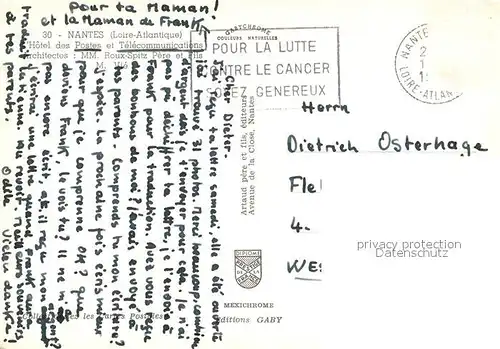 pour ta Maman!
et la Maman de Frank!
30 - NANTES (Loire-Atlantique)
Hôtel des Postes et Télécommunications
Architectes : MM. Roux-Spitz Père et Fils
GASTCHROME
COULEURS NATURELLES
POUR LA LUTTE
CONTRE LE CANCER
SOYEZ GENEREUX
NANTE
LOIRE-ATLAN
Cher Dieter.
J'ai reçu ta lettre samedi elle a été ouverte
j'ai trouvé 31 photos. Merci beaucoup, combien
d'argent dois je t'envoyer pour cela. Je n'ai
pas pû déchiffrer ta lettre, je l'envoie à
Frank pour la traduction. Avez vous reçue
des bonbons de moi? j'avais envoyé à
tes parents. Comprends tu mon écriture?
j'espère. La prochaine fois écris mieux
pour que je comprenne OK? que
deviens Frank, le vois tu? Il ne m'a
pas encore écrit, a t. il reçu mon argent?
J'écrirai une lettre quand Frank aura
traduit la tienne. Au revoir. Meilleurs souvenirs
à tes parents.
Odile
Vielen danke!
Artaud père et fils, éditeurs
Avenue de la Close, Nantes
Herrn
Dietrich Osterhage
Fle
4.
WES
privacy protection
DIPLOME
MEXICHROME
Editions GABY
Collectionnez les Cartes Postales